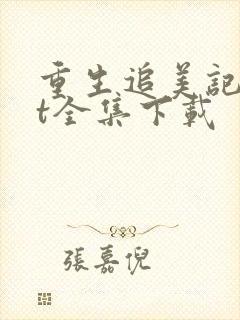 重生追美記
t全集下載
張嘉倪